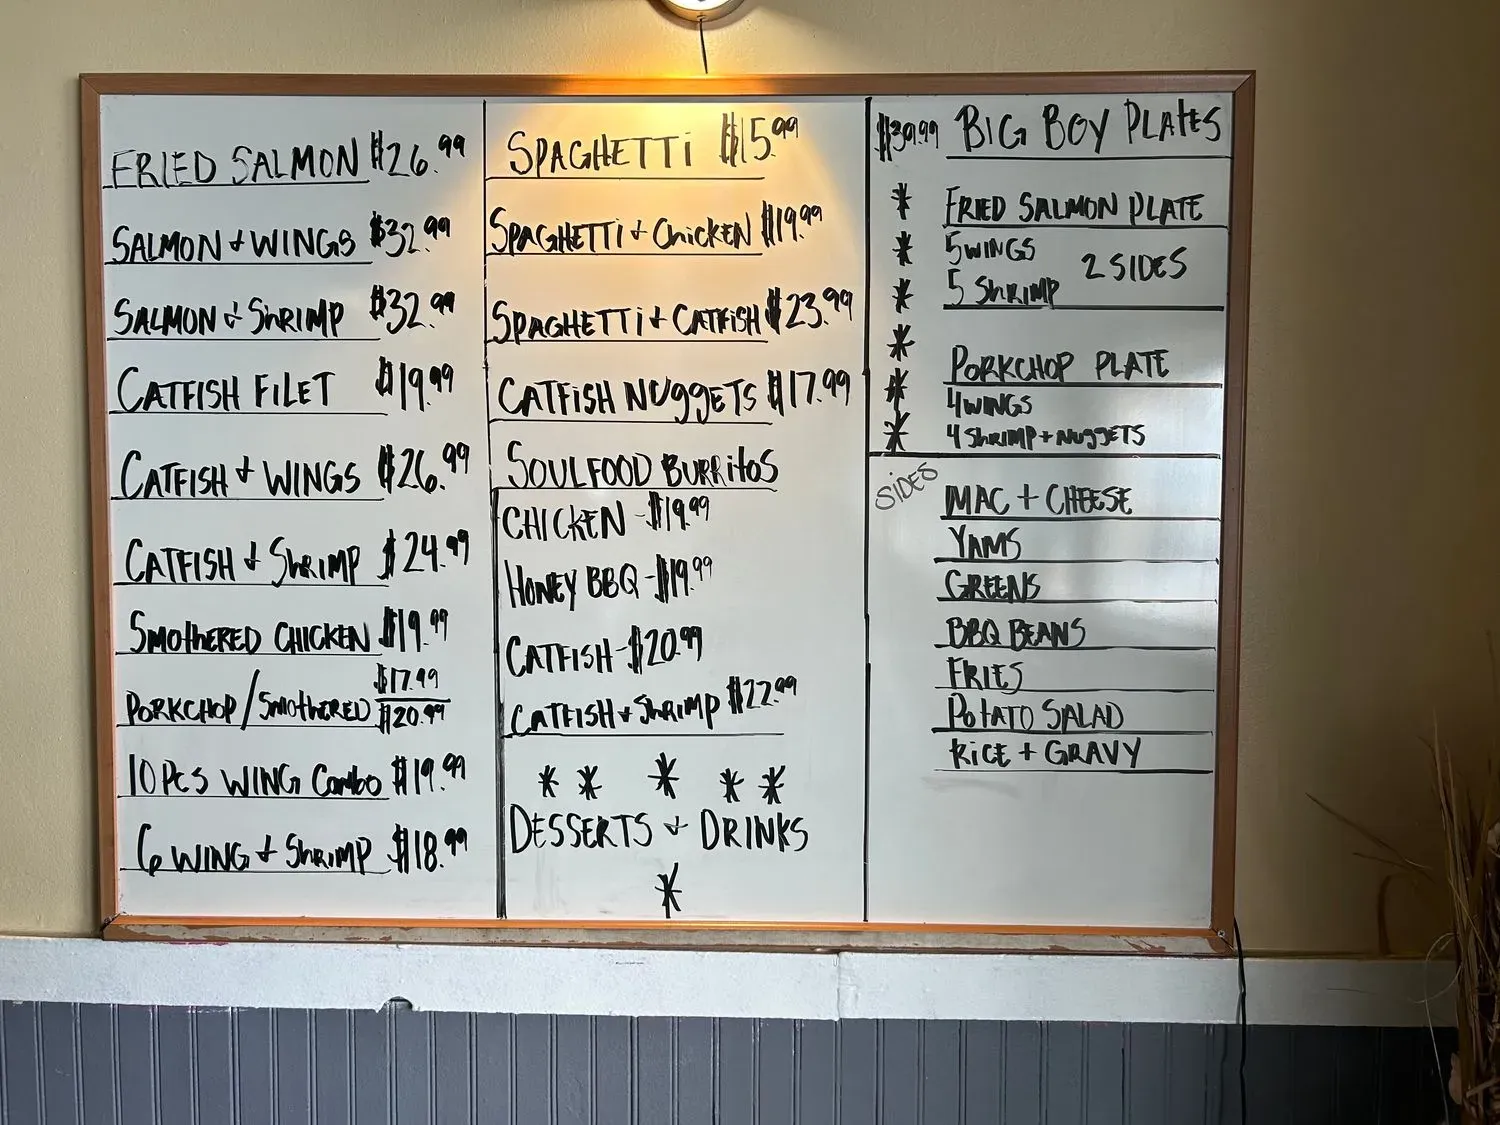 FRIED SALMON $26.99
SALMON & WINGS $32.99
SALMON & SHRIMP $32.99
CATFISH FILET $19.99
CATFISH & WINGS $26.99
CATFISH & SHRIMP $24.99
SMOTHERED CHICKEN $19.99
PORKCHOP/SMOTHERED $17.99
$20.99
10PCS WING Combo $19.99
6 WING & SHRIMP $18.99
SPAGHETTI $15.99
SPAGHETTI & CHICKEN $19.99
SPAGHETTI & CATFISH $23.99
CATFISH NUGGETS $17.99
SOULFOOD BURRITOS
CHICKEN - $19.99
HONEY BBQ - $19.99
CATFISH - $20.99
CATFISH & SHRIMP $22.99
* * * * *
DESSERTS & DRINKS
*
$39.99 BIG BOY PLATES
* FRIED SALMON PLATE
* 5 WINGS 2 SIDES
* 5 SHRIMP
* PORKCHOP PLATE
* 4 WINGS
* 4 SHRIMP + NUGGETS
SIDES
MAC + CHEESE
YAMS
GREENS
BBQ BEANS
FRIES
POTATO SALAD
RICE + GRAVY